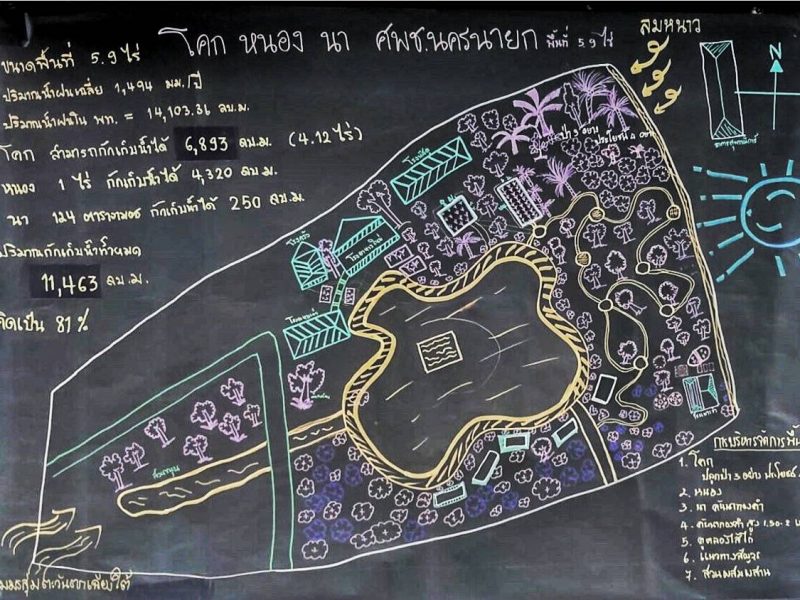 โคก หนอง นา ศพช.นครนายก พื้นที่ 5.9 ไร่
ขนาดพื้นที่ 5.9 ไร่
ปริมาณน้ำฝนเฉลี่ย 1,494 มม./ปี
ปริมาณน้ำฝนใน พท. = 14,103.36 ลบ.ม.
โคก สามารถกักเก็บน้ำได้ 6,893 ลบ.ม. (4.12 ไร่)
หนอง 1 ไร่ กักเก็บน้ำได้ 4,320 ลบ.ม.
นา 124 ตารางเมตร กักเก็บน้ำได้ 250 ลบ.ม.
ปริมาณกักเก็บน้ำทั้งหมด
11,463 ลบ.ม.
คิดเป็น 81%
ลมหนาว
N
ป่า 3 อยาง
ประโยชน์ 4 อยาง
โรงครัว
การบริหารจัดการพื้น
1. โคก
ปลูกป่า 3 อย่าง ประโยชน์
2. หนอง
3. นา คันนาทองคำ
4. คันนาทองคำ สูง 1.50-2
5. คลองไส้ไก่
6.
7. สวนผสมผสาน
ลมมรสุมตะวันตกเฉียงใต้